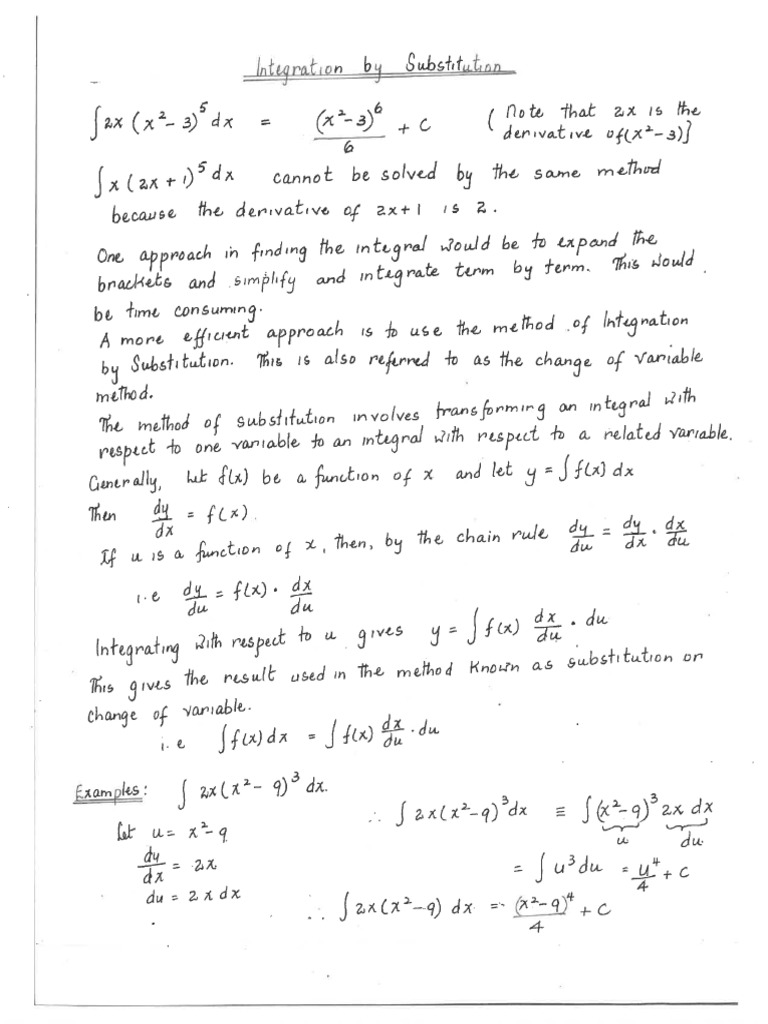 Integration by Substitution
∫2x (x²-3)⁵ dx = (x²-3)⁶/6 + C (Note that 2x is the
derivative of (x²-3)]
∫x (2x+1)⁵ dx cannot be solved by the same method
because the derivative of 2x+1 is 2.
One approach in finding the integral would be to expand the
brackets and simplify and integrate term by term. This would
be time consuming.
A more efficient approach is to use the method of Integration
by Substitution. This is also referred to as the change of variable
method.
The method of substitution involves transforming an integral with
respect to one variable to an integral with respect to a related variable.
Generally, let f(x) be a function of x and let y = ∫f(x) dx
Then dy/dx = f(x).
If u is a function of x, then, by the chain rule dy/du = dy/dx · dx/du
i.e dy/du = f(x) · dx/du
Integrating with respect to u gives y = ∫ f(x) dx/du · du
This gives the result used in the method known as substitution or
change of variable.
i.e ∫f(x)dx = ∫f(x) dx/du · du
Examples: ∫ 2x(x²-9)³ dx.
Let u = x²-9
dy/dx = 2x
du = 2x dx
∴ ∫2x(x²-9)³dx ≡ ∫(x²-9)³ 2x dx
u du
= ∫u³du = u⁴/4 + C
∴ ∫2x(x²-9) dx = (x²-9)⁴/4 + C